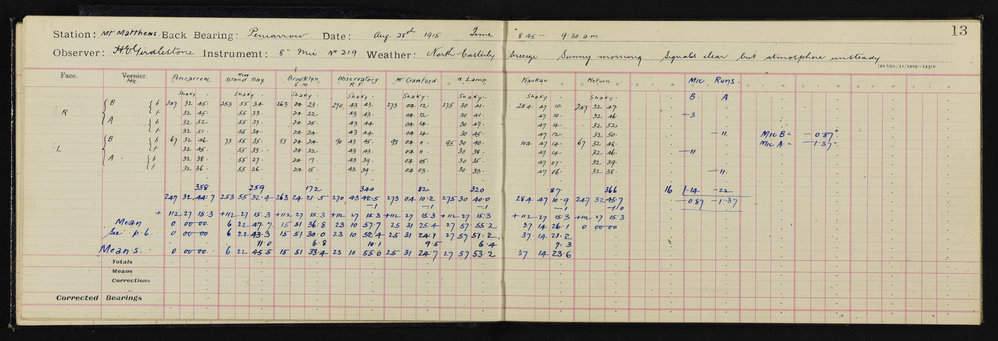 13
Station: Mt Matthews Back Bearing: Pencarrow Date: Aug 28th 1915 Time 8.45 - 9.30 a.m
Observer: H.E. Girdlestone Instrument: 8" Mic No 219 Weather: North-Easterly breeze Sunny morning Signals clear but atmosphere unsteady
Face. Vernier. Mc Pencarrow Island Bay Brooklyn S.M. Observatory R.F Mt Crawford N. Lamp Return Mic Runs.
Shaky. Shaky. Shaky. Shaky. Shaky. Shaky. Shaky. Shaky. B A
R B 247 32 45 253 55 34 263 24 23 270 43 43 273 04 12 275 30 41 284 47 10 247 32 47
32 45 55 33 24 22 43 43 04 12 30 41 47 10 32 46 -3
A 32 52 55 37 24 25 43 44 04 14 30 47 47 14 32 52
32 51 55 34 24 24 43 44 04 14 30 45 47 12 32 50 -11 Mic B = -0.87"
L B 67 32 46 73 55 35 83 24 24 90 43 45 93 04 11 95 30 40 104 47 14 67 32 46 Mic A = -1.37
32 45 55 33 24 22 43 43 04 11 30 38 47 14 32 46 -11
A 32 38 55 27 24 17 43 39 04 05 30 35 47 07 32 39
32 36 55 26 24 15 43 39 04 03 30 33 47 06 32 38 -11
358 259 172 340 82 320 87 366 16 1.14 -22
247 32 44.7 253 55 32.4 263 24 21.5 270 43 42.5 273 04 10.2 275 30 40.0 284 47 10.9 247 32 45.7 -0.87 -1.37
-.1 -.1 -.1 -.1 -1.0
+112 27 15.3 +112 27 15.3 +112 27 15.3 +112 27 15.3 +112 27 15.3 +112 27 15.3 +112 27 15.3 +112 27 15.3
Mean 0 00 00 6 22 47.7 15 51 36.8 23 10 57.7 25 31 25.4 27 57 55.2 37 14 26.1 0 00 00
See p. 6 0 00 00 6 22 43.3 15 51 30.0 23 10 52.4 25 31 24.1 27 57 51.2 37 14 21.2
11.0 6.8 10.1 9.5 6.4 7.3
Means 0 00 00 6 22 45.5 15 51 33.4 23 10 55.0 25 31 24.7 27 57 53.2 37 14 23.6
Totals
Means
Corrections
Corrected Bearings